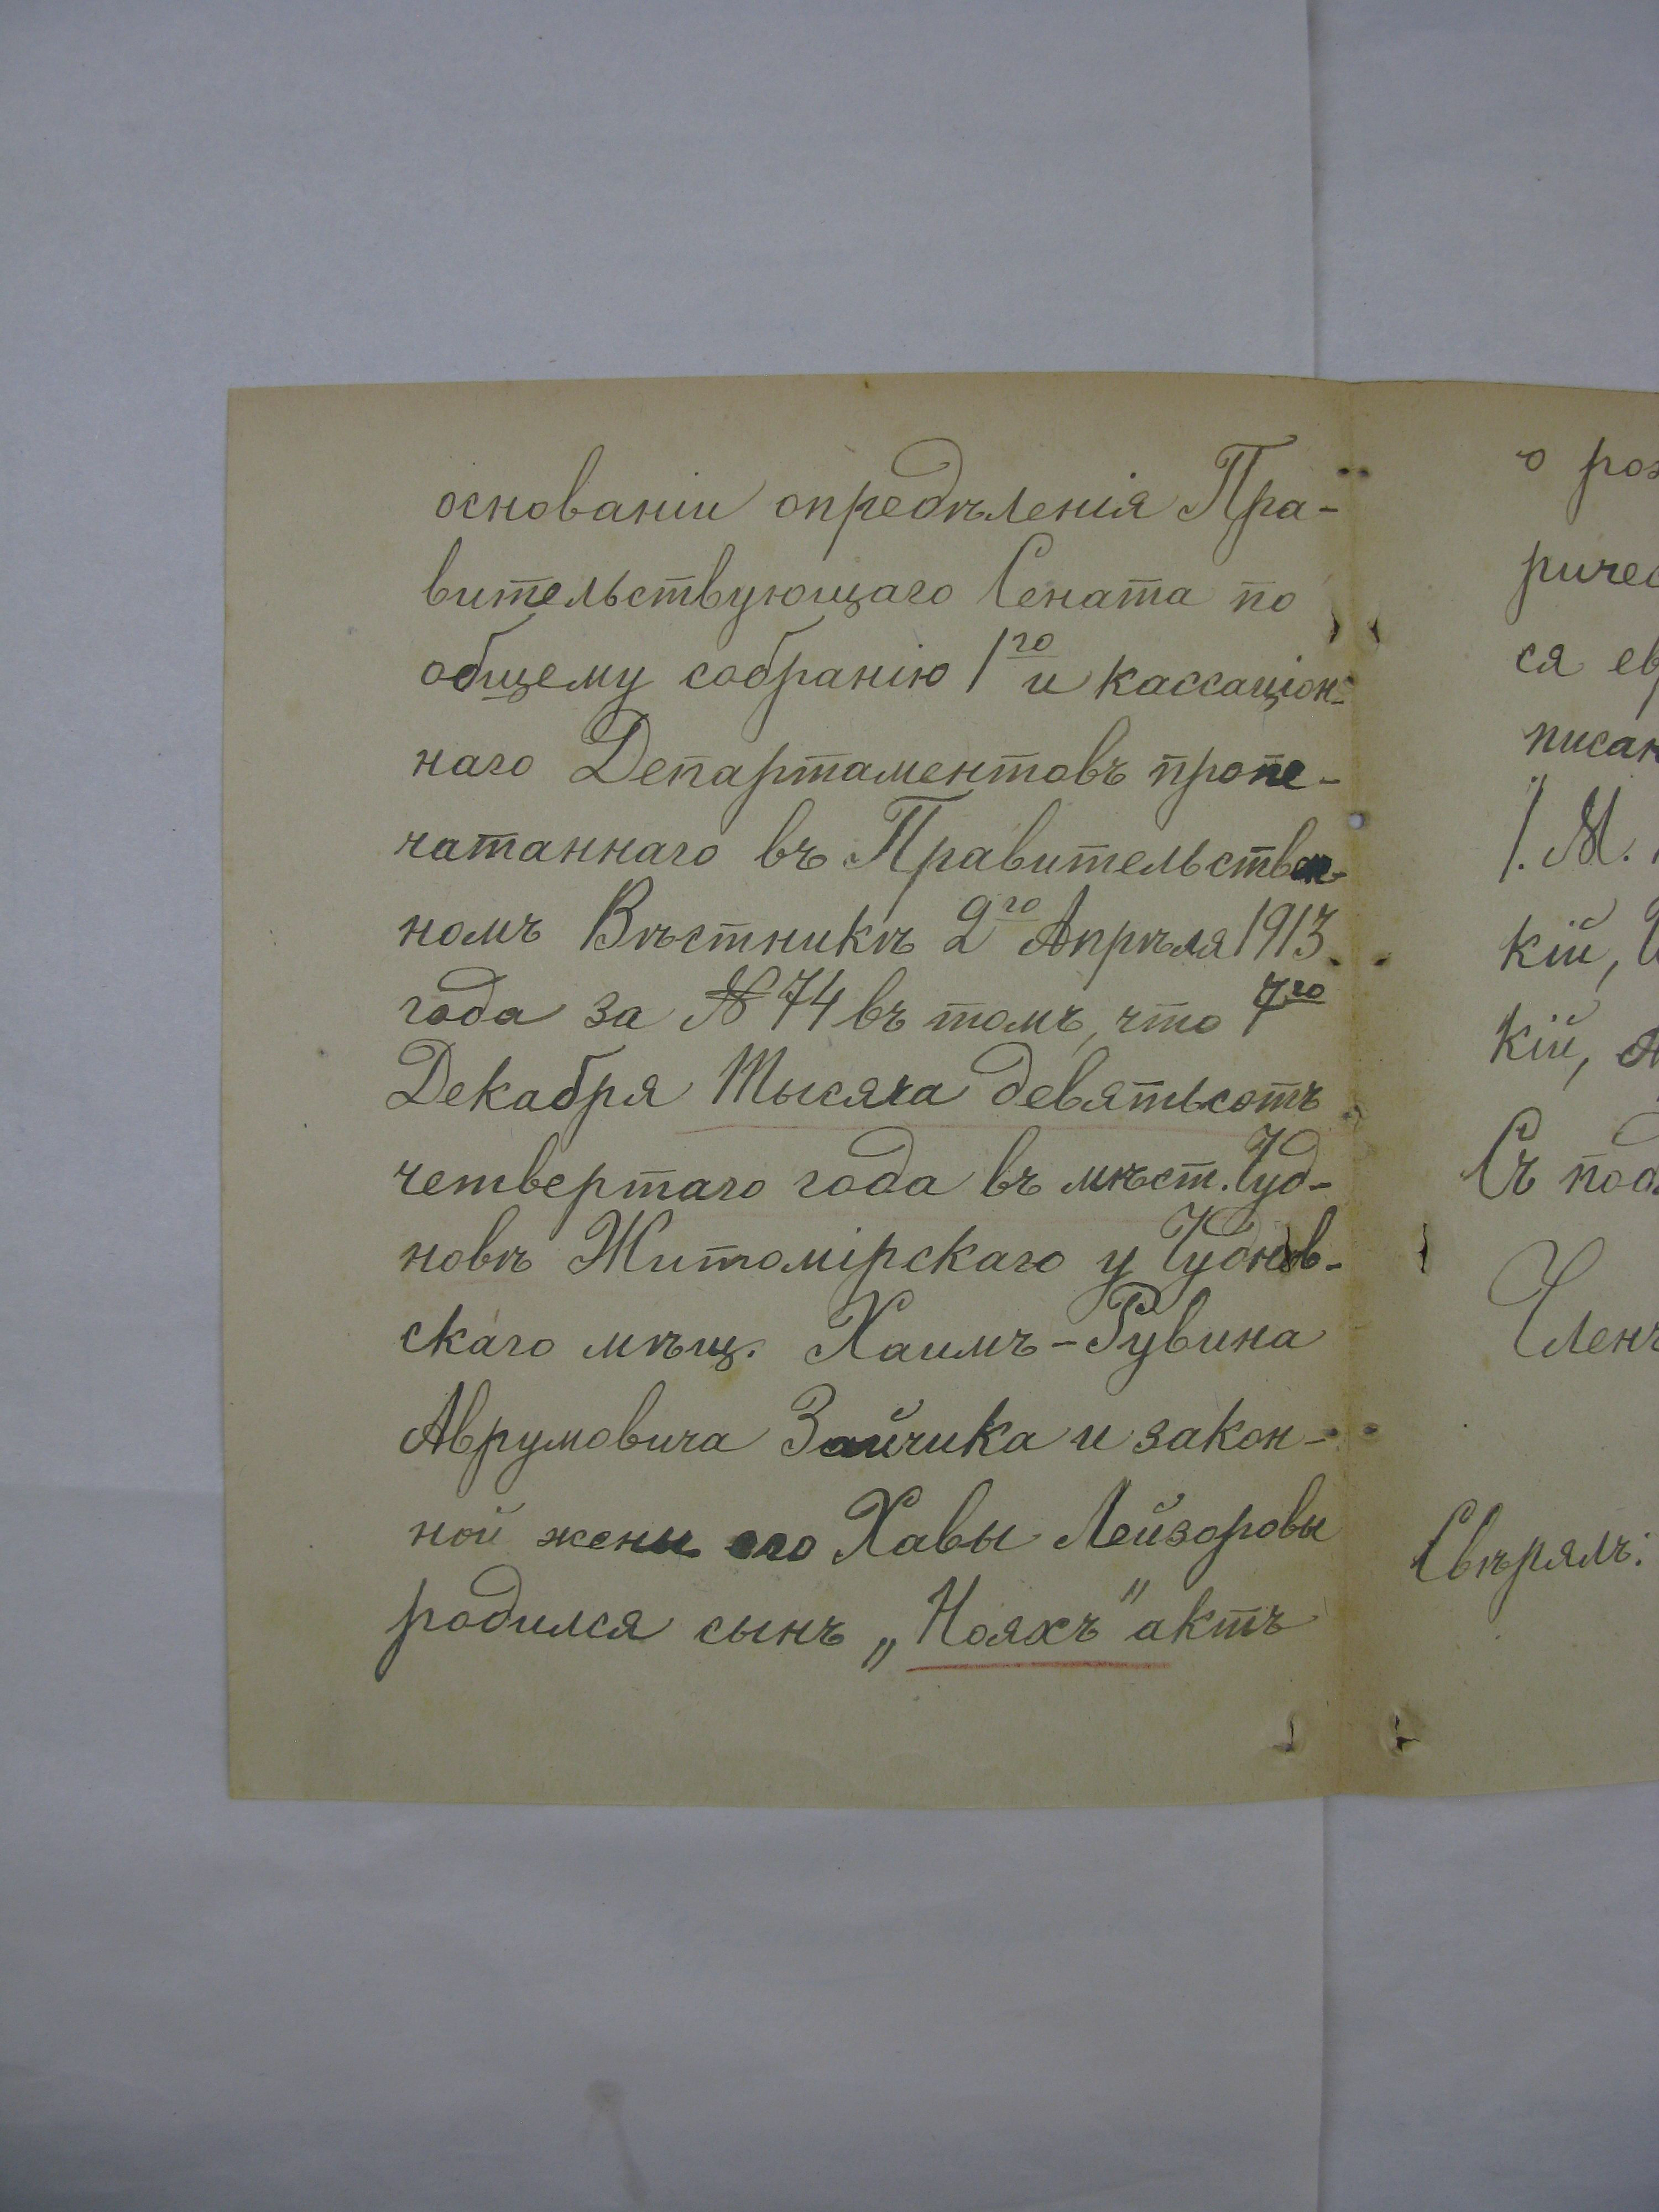 основаніи опредѣленія Пра-
вительствующаго Сената по
общему собранію 1го и кассаціон-
наго Департаментовъ пропе-
чатаннаго въ Правительствен-
номъ Вѣстникѣ 2го Апрѣля 1913
года за № 74 въ томъ, что 7го
Декабря Тысяча девятьсотъ
четвертаго года въ мѣст. Чуд-
новѣ Житомірскаго у Чуднов-
скаго мѣщ. Хаимъ-Рувина
Аврумовича Зайчика и закон-
ной жены его Хавы Лейзоровы
родился сынъ „Нояхъ" актъ
о роз
ричес
ся ев
писан
І. М.
кій,
кій,
Съ под
Членъ
Свѣрялъ: